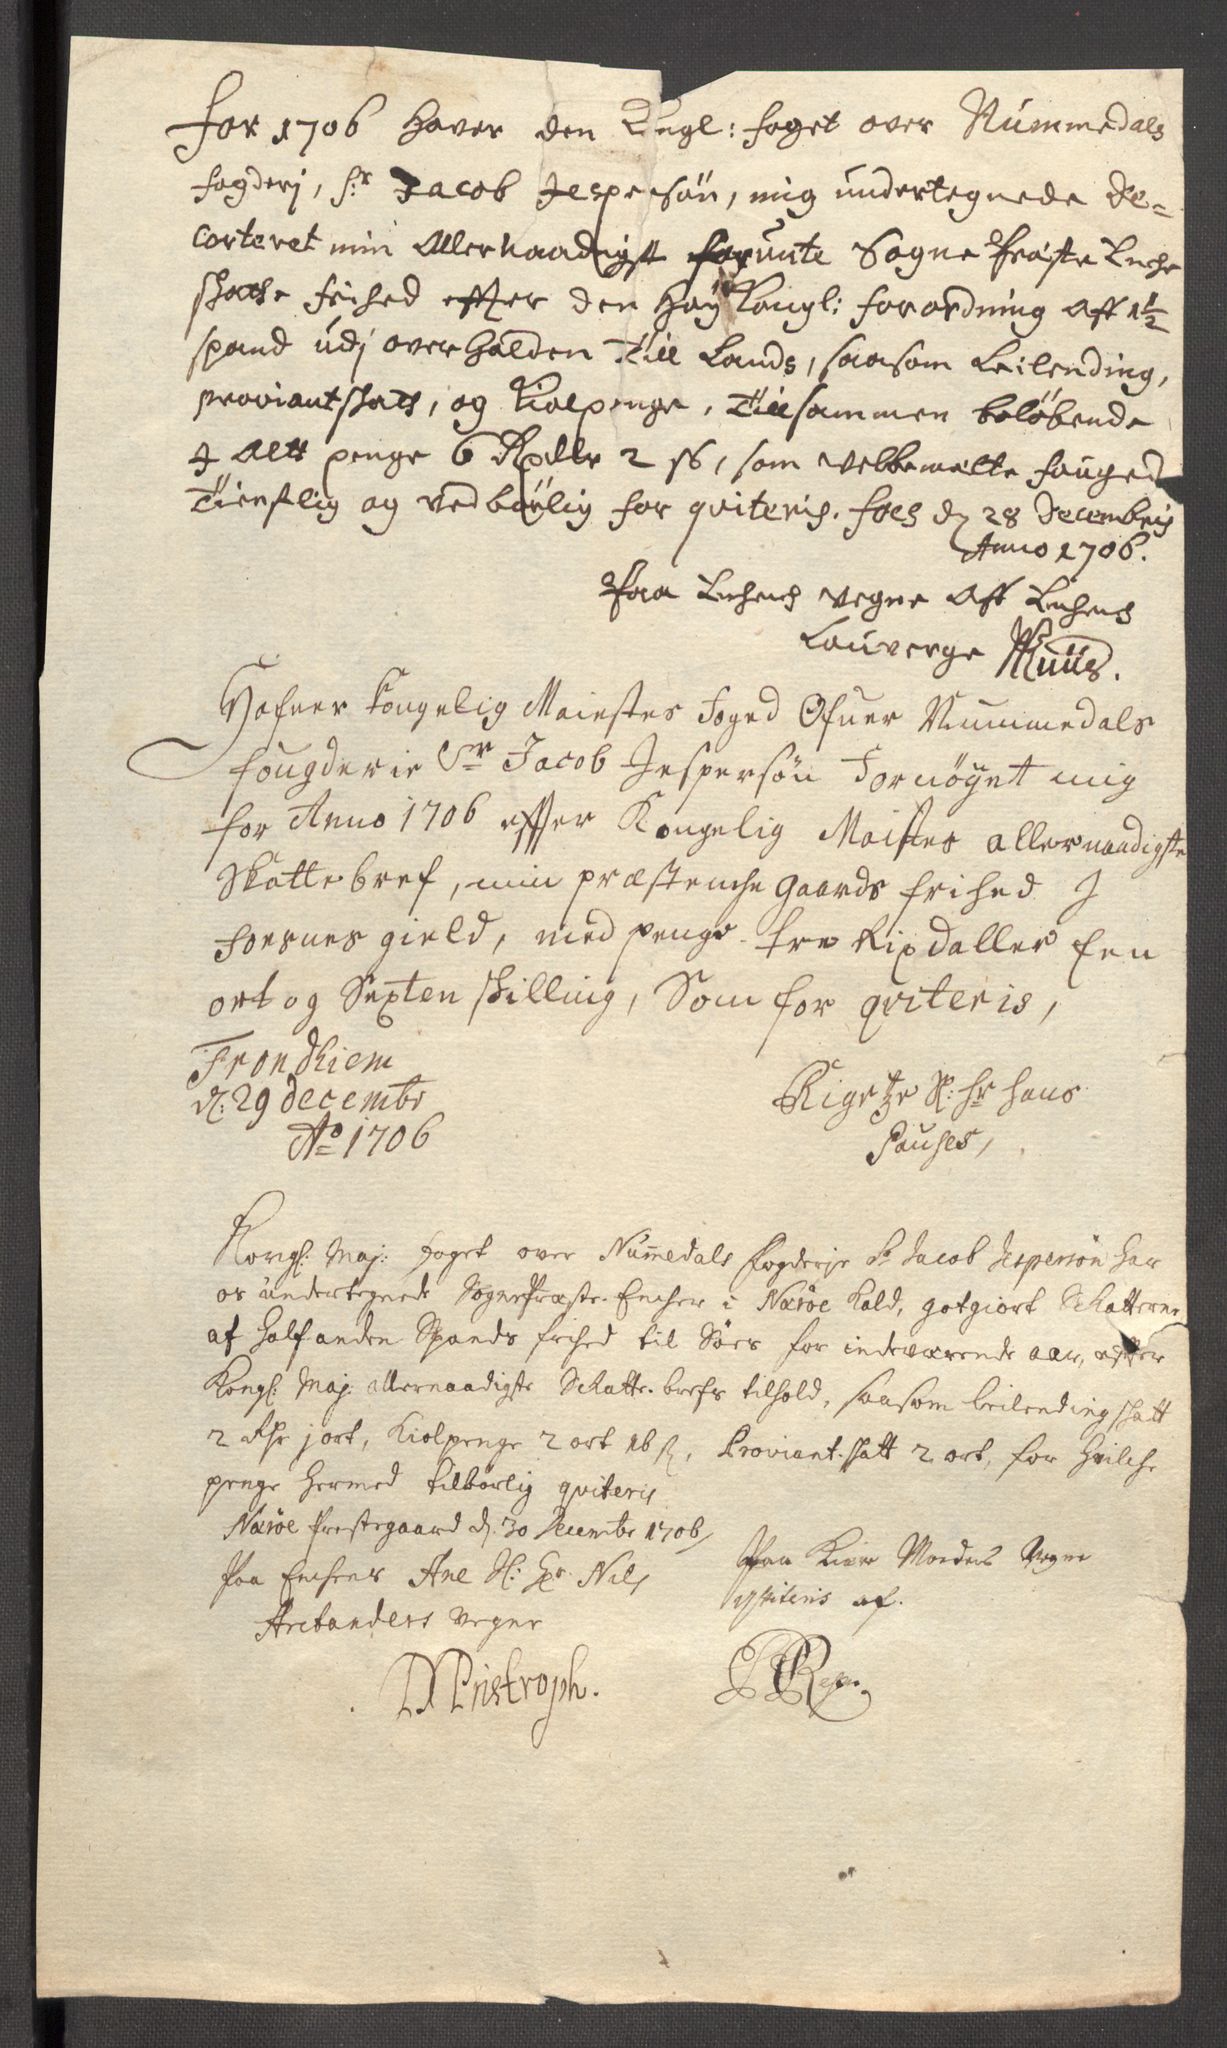 For 1706 haver den Kngl: foget over Nummedals
fogderj, Sr Jacob Jespersøn, mig undertegnede De=
corteret min Allernaadigst forunte Sogne Præste Enche
skatte frihed effter den høÿ Kongl: forordning Aff 1½
spand udj overhalden Till Lands, saasom Leilending,
proviantskatt, og Kiolpenge, Tillsammen beløbende
J Alt penge 6 Rpdlr 2 ss, som velbemælte fouged
Tienstlig og vedbørlig for qviteris. d. 28 Decembris
Anno 1706.
Paa Enchens vegne Aff Enchens
Lauverge Muus.
Hafuer Kongelig Maiestes Foged Ofuer Nummedals
fougderie Sr Jacob Jespersøn Fornøÿet mig
for Anno 1706 effter Kongelig Maistes allernaadigste
Skattebref, min præstenche gaards frihed J
Foesnes gield, med penge tre Rixdaller Een
ort og Sexten skilling, Som for qviteris,
Trondhiem
d: 29 decembr
Ao 1706
Sl: hr hans
Pauses,
Kongl: Maj: Foget over Nummedals fogderje Sr Jacob Jespersøn har
os undertegnede SognePræste-Encher i Nærøe Kald, gotgiort Skatterne
af half anden Spands frihed til Søes for indeværende aar, efter
Kongl: Maj: allernaadigste Skatte-brefs tilhold, saasom leilending skatt
2 Rhr 1 ort, Kiolpenge 2 ort 16 s, Proviant-skatt 2 ort, for hvilche
penge hermed tilbørlig qviteris
Nærøe Prestegaard d. 30 Decembr 1706
Paa Enchens Ane Sl: Hr Nils
Arctanders vegne
Paa Vegne
qviteris af.
Pristroph.